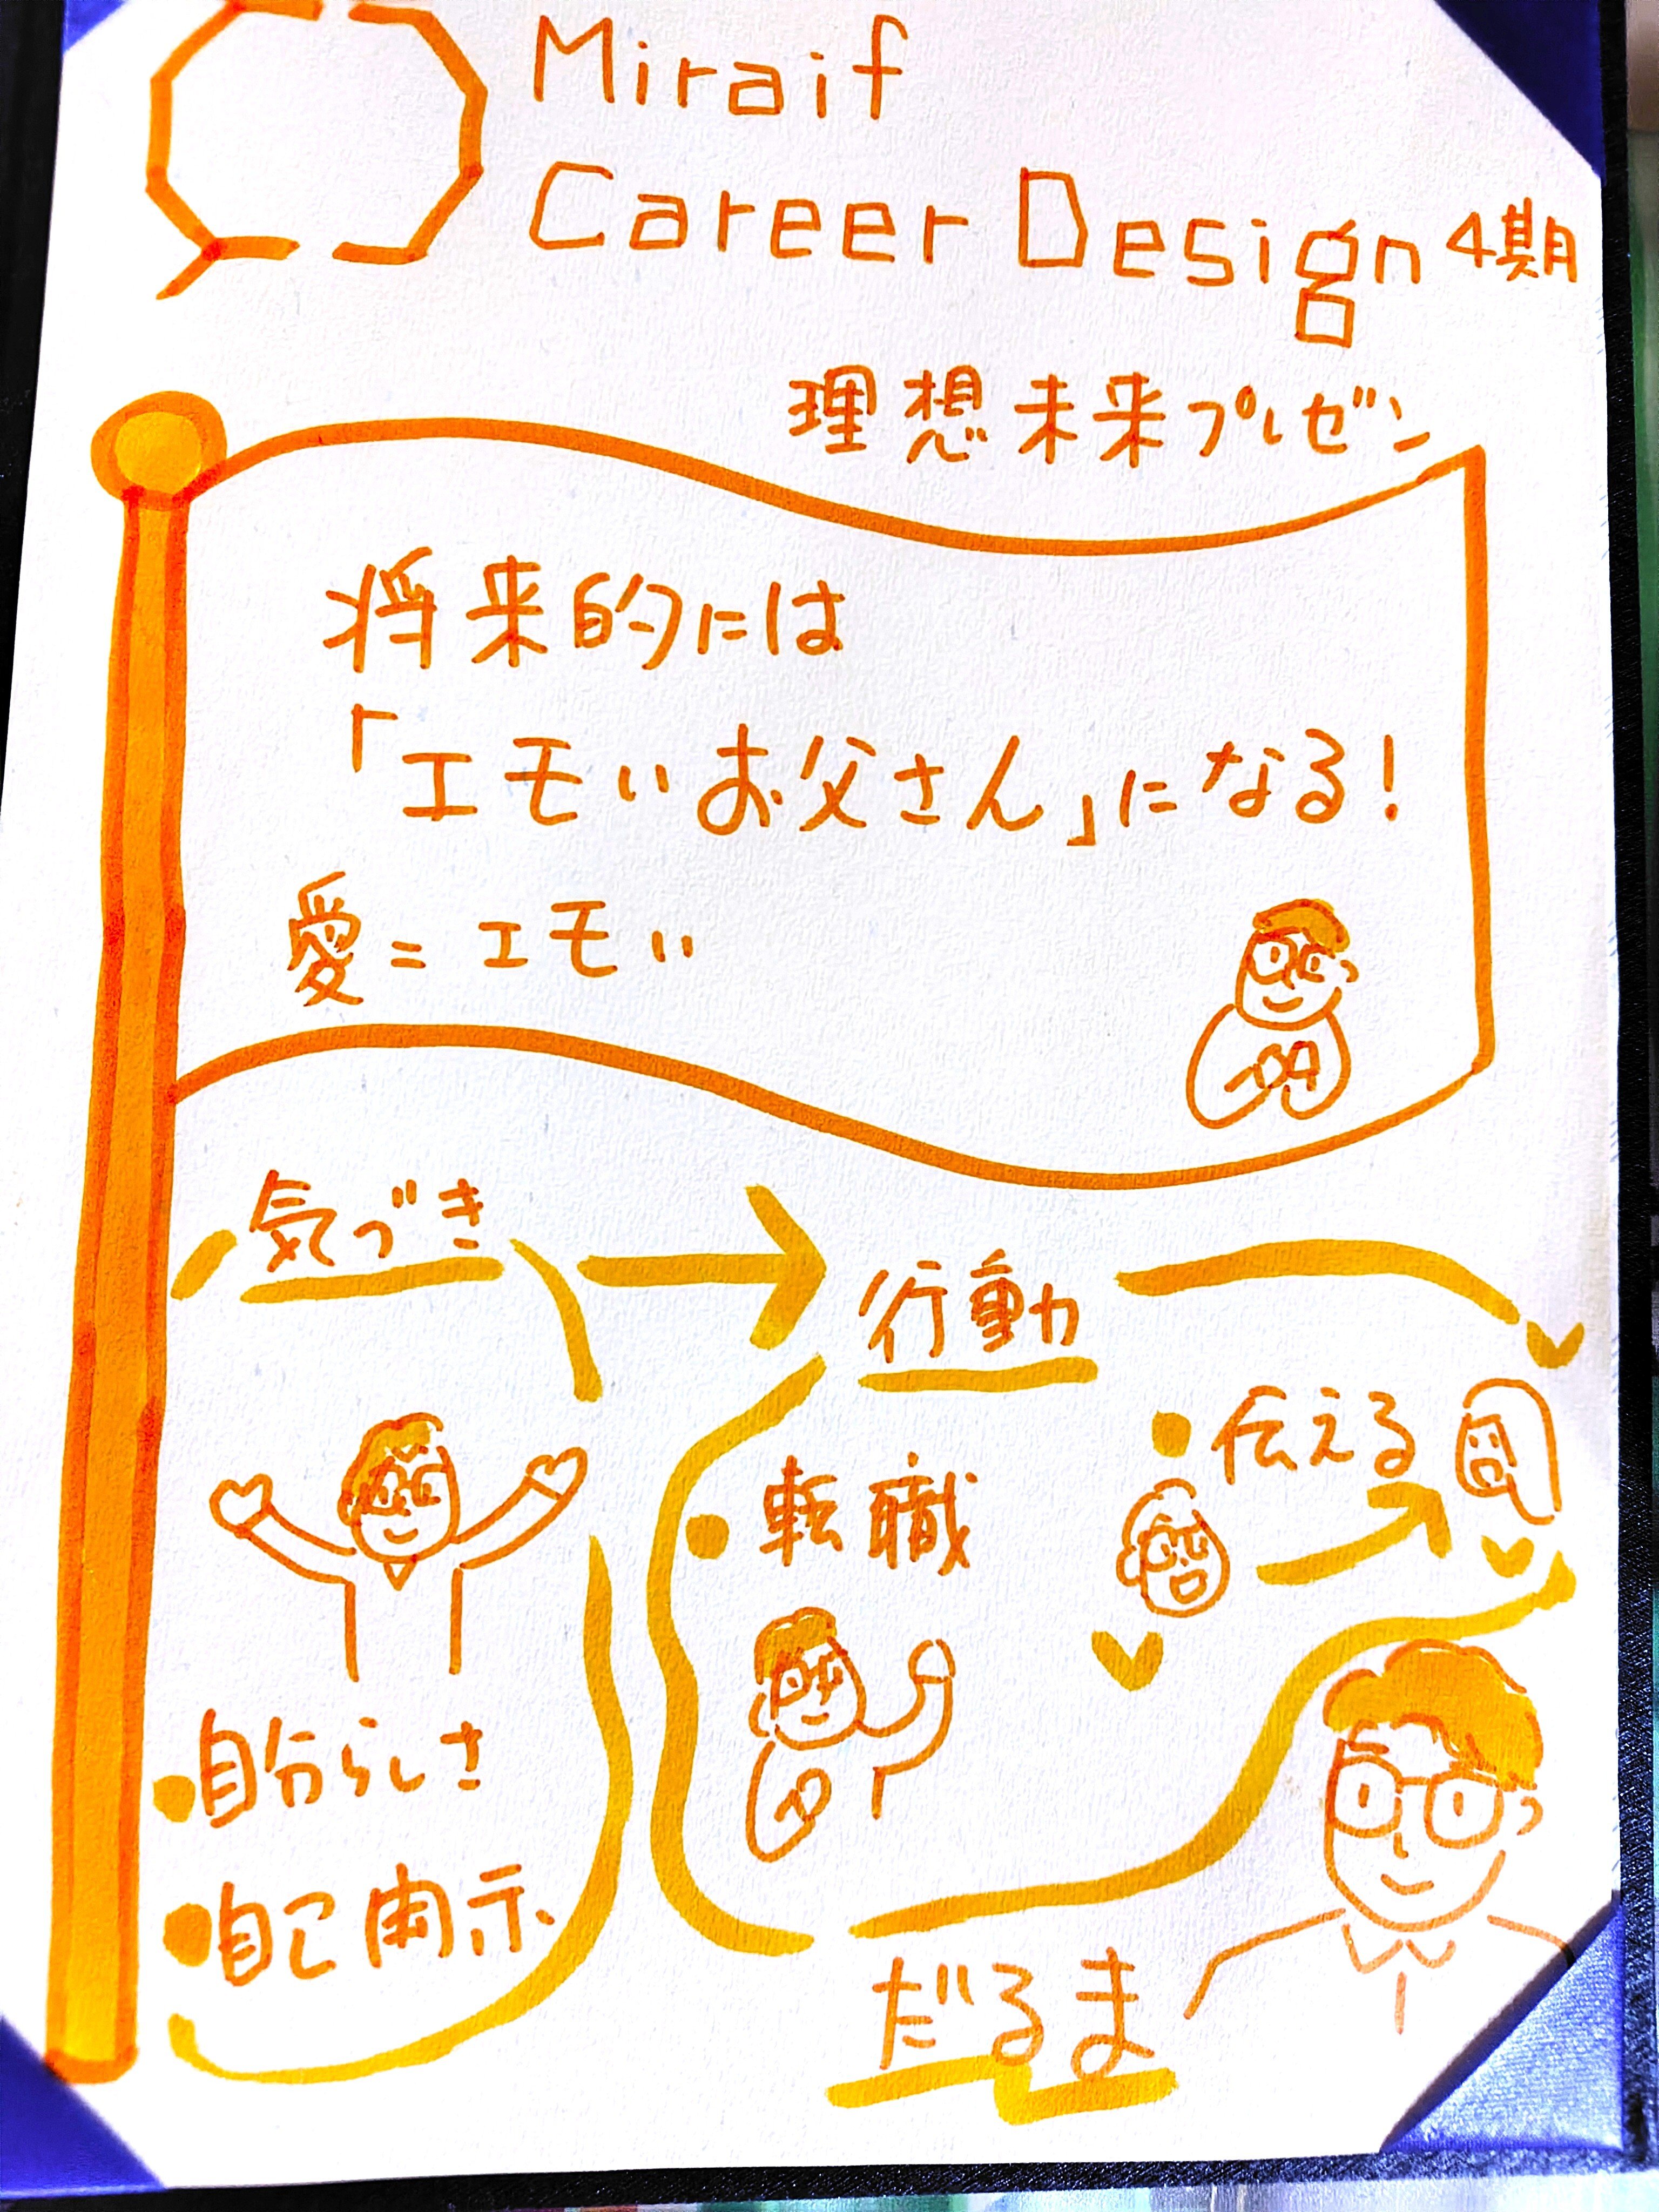 Miraif
Career Design 4期
理想未来プレゼン
将来的には
「エモいお父さん」になる!
愛=エモい
気づき
行動
・伝える
・転職
・自分らしさ
・自己開示
だるま